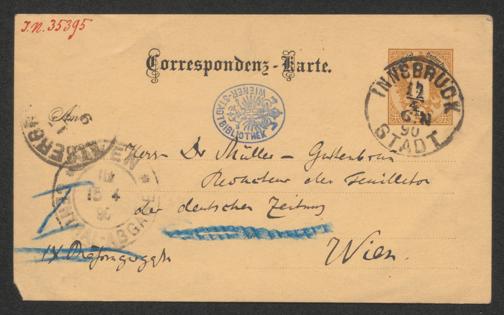 J.N. 35395
Correspondenz-Karte.
An
WIENER-STADTBIBLIOTHEK
INNSBRUCK
STADT
17
4
6 N
90
Herrn Dr Müller-Guttenbrunn
Redacteur des Feuilleton
der deutschen Zeitung
Wien.
IX
18 4
90